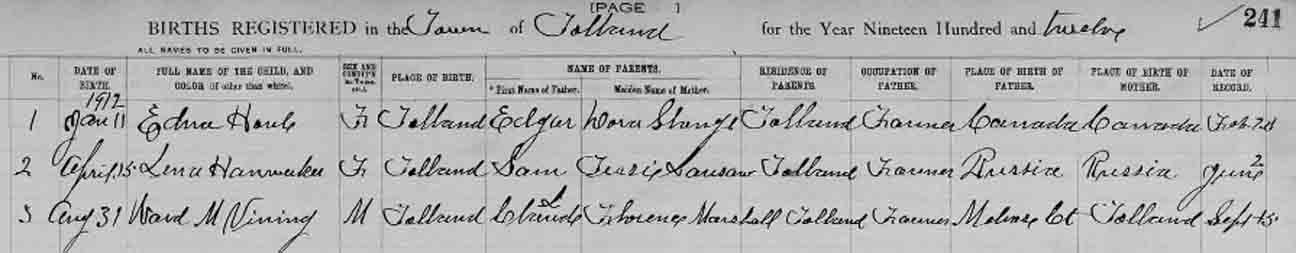 [PAGE ]
BIRTHS REGISTERED in the Town of Tolland for the Year Nineteen Hundred and twelve 241
ALL NAMES TO BE GIVEN IN FULL.
No. DATE OF BIRTH. FULL NAME OF THE CHILD, AND COLOR (if other than white). SEX AND CONDIT'N PLACE OF BIRTH. NAME OF PARENTS. * First Name of Father. Maiden Name of Mother. RESIDENCE OF PARENTS. OCCUPATION OF FATHER. PLACE OF BIRTH OF FATHER. PLACE OF BIRTH OF MOTHER. DATE OF RECORD.
1912
1 Jan 11 Edna F Tolland Edgar Dora Tolland Farmer Canada Canada Feb
2 April 15 Lena F Tolland Sam Tessie Tolland Farmer Russia Russia June 2
3 Aug 31 Ward M Vining M Tolland Claude L Florence Marshall Tolland Farmer Ct Tolland Sept 15